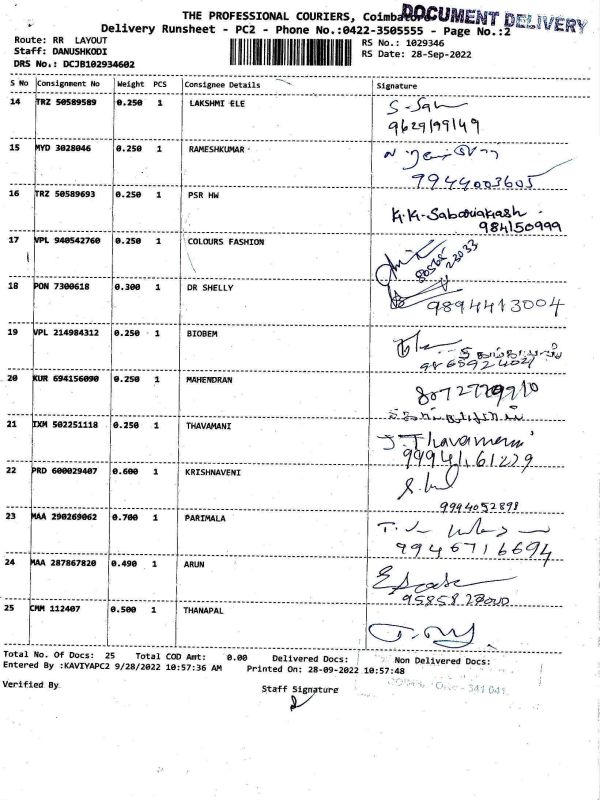 THE PROFESSIONAL COURIERS, Coimbatore
DOCUMENT DELIVERY
Delivery Runsheet - PC2 - Phone No.:0422-3505555 - Page No.:2
Route: RR LAYOUT RS No.: 1029346
Staff: DANUSHKODI RS Date: 28-Sep-2022
DRS No.: DCJB102934602
S No Consignment No Weight PCS Consignee Details Signature
14 TRZ 50589589 0.250 1 LAKSHMI ELE
9629199149
15 MYD 3028046 0.250 1 RAMESHKUMAR
9944003605
16 TRZ 50589693 0.250 1 PSR HW
984150999
17 VPL 940542760 0.250 1 COLOURS FASHION
18 PON 7300618 0.300 1 DR SHELLY
9894413004
19 VPL 214984312 0.250 1 BIOBEM
20 KUR 694156090 0.250 1 MAHENDRAN
21 IXM 502251118 0.250 1 THAVAMANI
J.Thavamani
22 PRD 600029407 0.600 1 KRISHNAVENI
9994052898
23 MAA 290269062 0.700 1 PARIMALA
9946716694
24 MAA 287867820 0.490 1 ARUN
25 CMM 112407 0.500 1 THANAPAL
Total No. Of Docs: 25 Total COD Amt: 0.00 Delivered Docs: Non Delivered Docs:
Entered By :KAVIYAPC2 9/28/2022 10:57:36 AM Printed On: 28-09-2022 10:57:48
Verified By Staff Signature